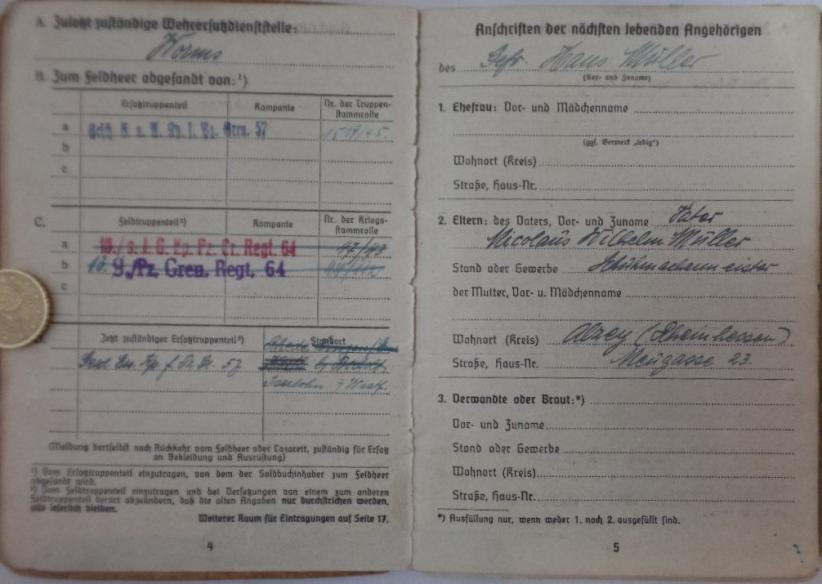 A. Zuletzt zuständige Wehrersatzdienststelle:
Worms
B. Zum Feldheer abgesandt von:¹)
Ersatztruppenteil Kompanie Nr. der Truppen-
stammrolle
a 57
b
c
C. Feldtruppenteil²) Kompanie Nr. der Kriegs-
stammrolle
a 10./s. I. G. Kp. Pz. Gr. Regt. 64
b 9./Pz. Gren. Regt. 64
c
Jetzt zuständiger Ersatztruppenteil²) Standort
57
Iserlohn i. Westf.
(Meldung dortselbst nach Rückkehr vom Feldheer oder Lazarett, zuständig für Ersatz
an Bekleidung und Ausrüstung)
¹) Vom Ersatztruppenteil einzutragen, von dem der Soldbuchinhaber zum Feldheer
abgesandt wird.
²) Vom Feldtruppenteil einzutragen und bei Versetzungen von einem zum anderen
Feldtruppenteil derart abzuändern, daß die alten Angaben nur durchstrichen werden,
also leserlich bleiben.
Weiterer Raum für Eintragungen auf Seite 17.
4
Anschriften der nächsten lebenden Angehörigen
des Gefr. Hans Müller
(Vor- und Zuname)
1. Ehefrau: Vor- und Mädchenname
(ggf. Vermerk „ledig")
Wohnort (Kreis)
Straße, Haus-Nr.
2. Eltern: des Vaters, Vor- und Zuname Vater
Nicolaus Wilhelm Müller
Stand oder Gewerbe Schuhmachermeister
der Mutter, Vor- u. Mädchenname
Wohnort (Kreis) Alzey (Rheinhessen)
Straße, Haus-Nr. Neugasse 23.
3. Verwandte oder Braut:*)
Vor- und Zuname
Stand oder Gewerbe
Wohnort (Kreis)
Straße, Haus-Nr.
*) Ausfüllung nur, wenn weder 1. noch 2. ausgefüllt sind.
5